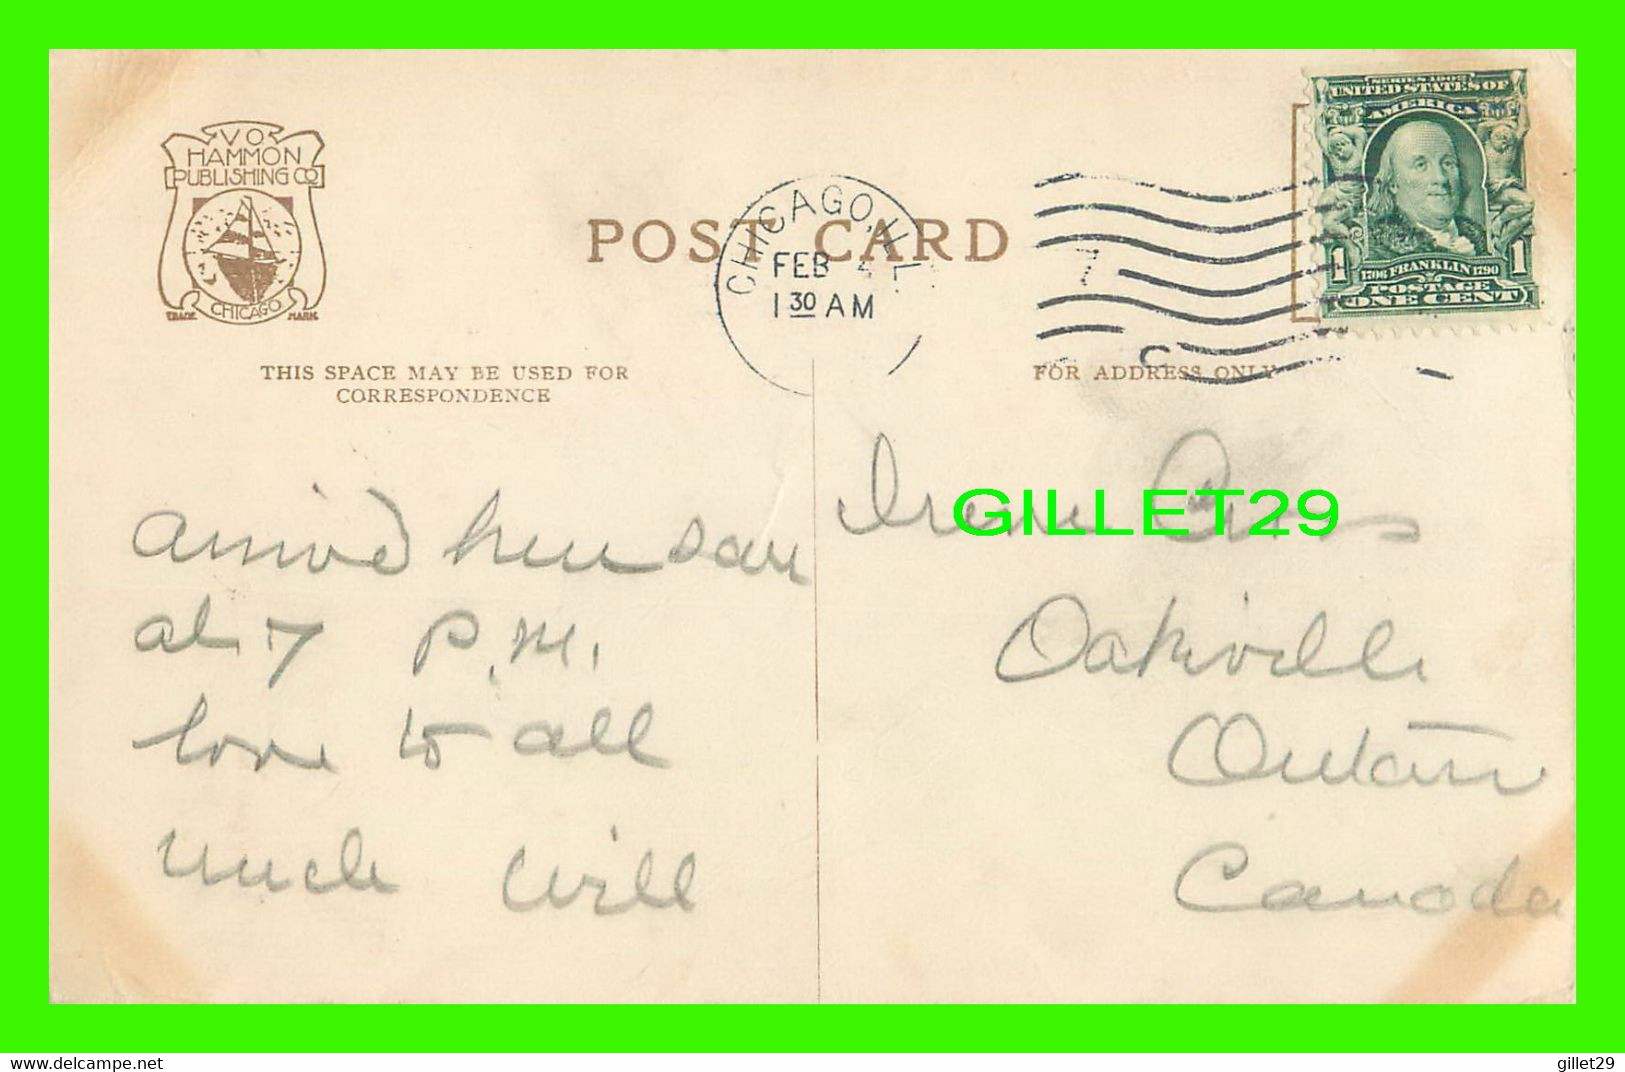 V O
HAMMON
PUBLISHING CO
CHICAGO
TRADE MARK
POST CARD
CHICAGO, ILL.
FEB
1 30 AM
7
C
SERIES 1902
UNITED STATES OF
AMERICA
1706 FRANKLIN 1790
1 1
POSTAGE
ONE CENT
THIS SPACE MAY BE USED FOR
CORRESPONDENCE
FOR ADDRESS ONLY
arrived here
at 7 P.M.
love to all
uncle Will
Irene
Oakville
Ontario
Canada
GILLET29
www.delcampe.net
gillet29